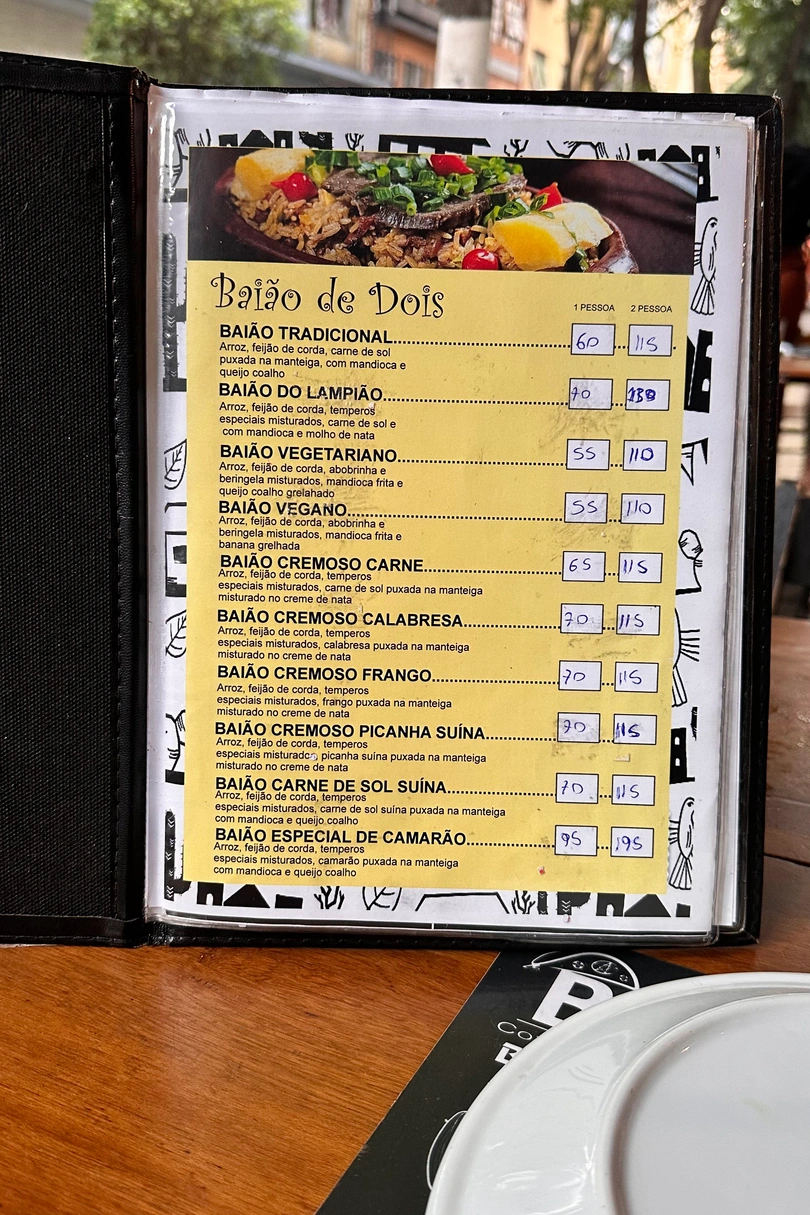 Baião de Dois
1 PESSOA 2 PESSOA
BAIÃO TRADICIONAL 60 115
Arroz, feijão de corda, carne de sol
puxada na manteiga, com mandioca e
queijo coalho
BAIÃO DO LAMPIÃO 70
Arroz, feijão de corda, temperos
especiais misturados, carne de sol e
com mandioca e molho de nata
BAIÃO VEGETARIANO 55 110
Arroz, feijão de corda, abobrinha e
beringela misturados, mandioca frita e
queijo coalho grelahado
BAIÃO VEGANO 55 110
Arroz, feijão de corda, abobrinha e
beringela misturados, mandioca frita e
banana grelhada
BAIÃO CREMOSO CARNE 65 115
Arroz, feijão de corda, temperos
especiais misturados, carne de sol puxada na manteiga
misturado no creme de nata
BAIÃO CREMOSO CALABRESA 70 115
Arroz, feijão de corda, temperos
especiais misturados, calabresa puxada na manteiga
misturado no creme de nata
BAIÃO CREMOSO FRANGO 70 115
Arroz, feijão de corda, temperos
especiais misturados, frango puxada na manteiga
misturado no creme de nata
BAIÃO CREMOSO PICANHA SUÍNA 70 115
Arroz, feijão de corda, temperos
especiais misturados, picanha suína puxada na manteiga
misturado no creme de nata
BAIÃO CARNE DE SOL SUÍNA 70 115
Arroz, feijão de corda, temperos
especiais misturados, carne de sol suína puxada na manteiga
com mandioca e queijo coalho
BAIÃO ESPECIAL DE CAMARÃO 95 195
Arroz, feijão de corda, temperos
especiais misturados, camarão puxada na manteiga
com mandioca e queijo coalho